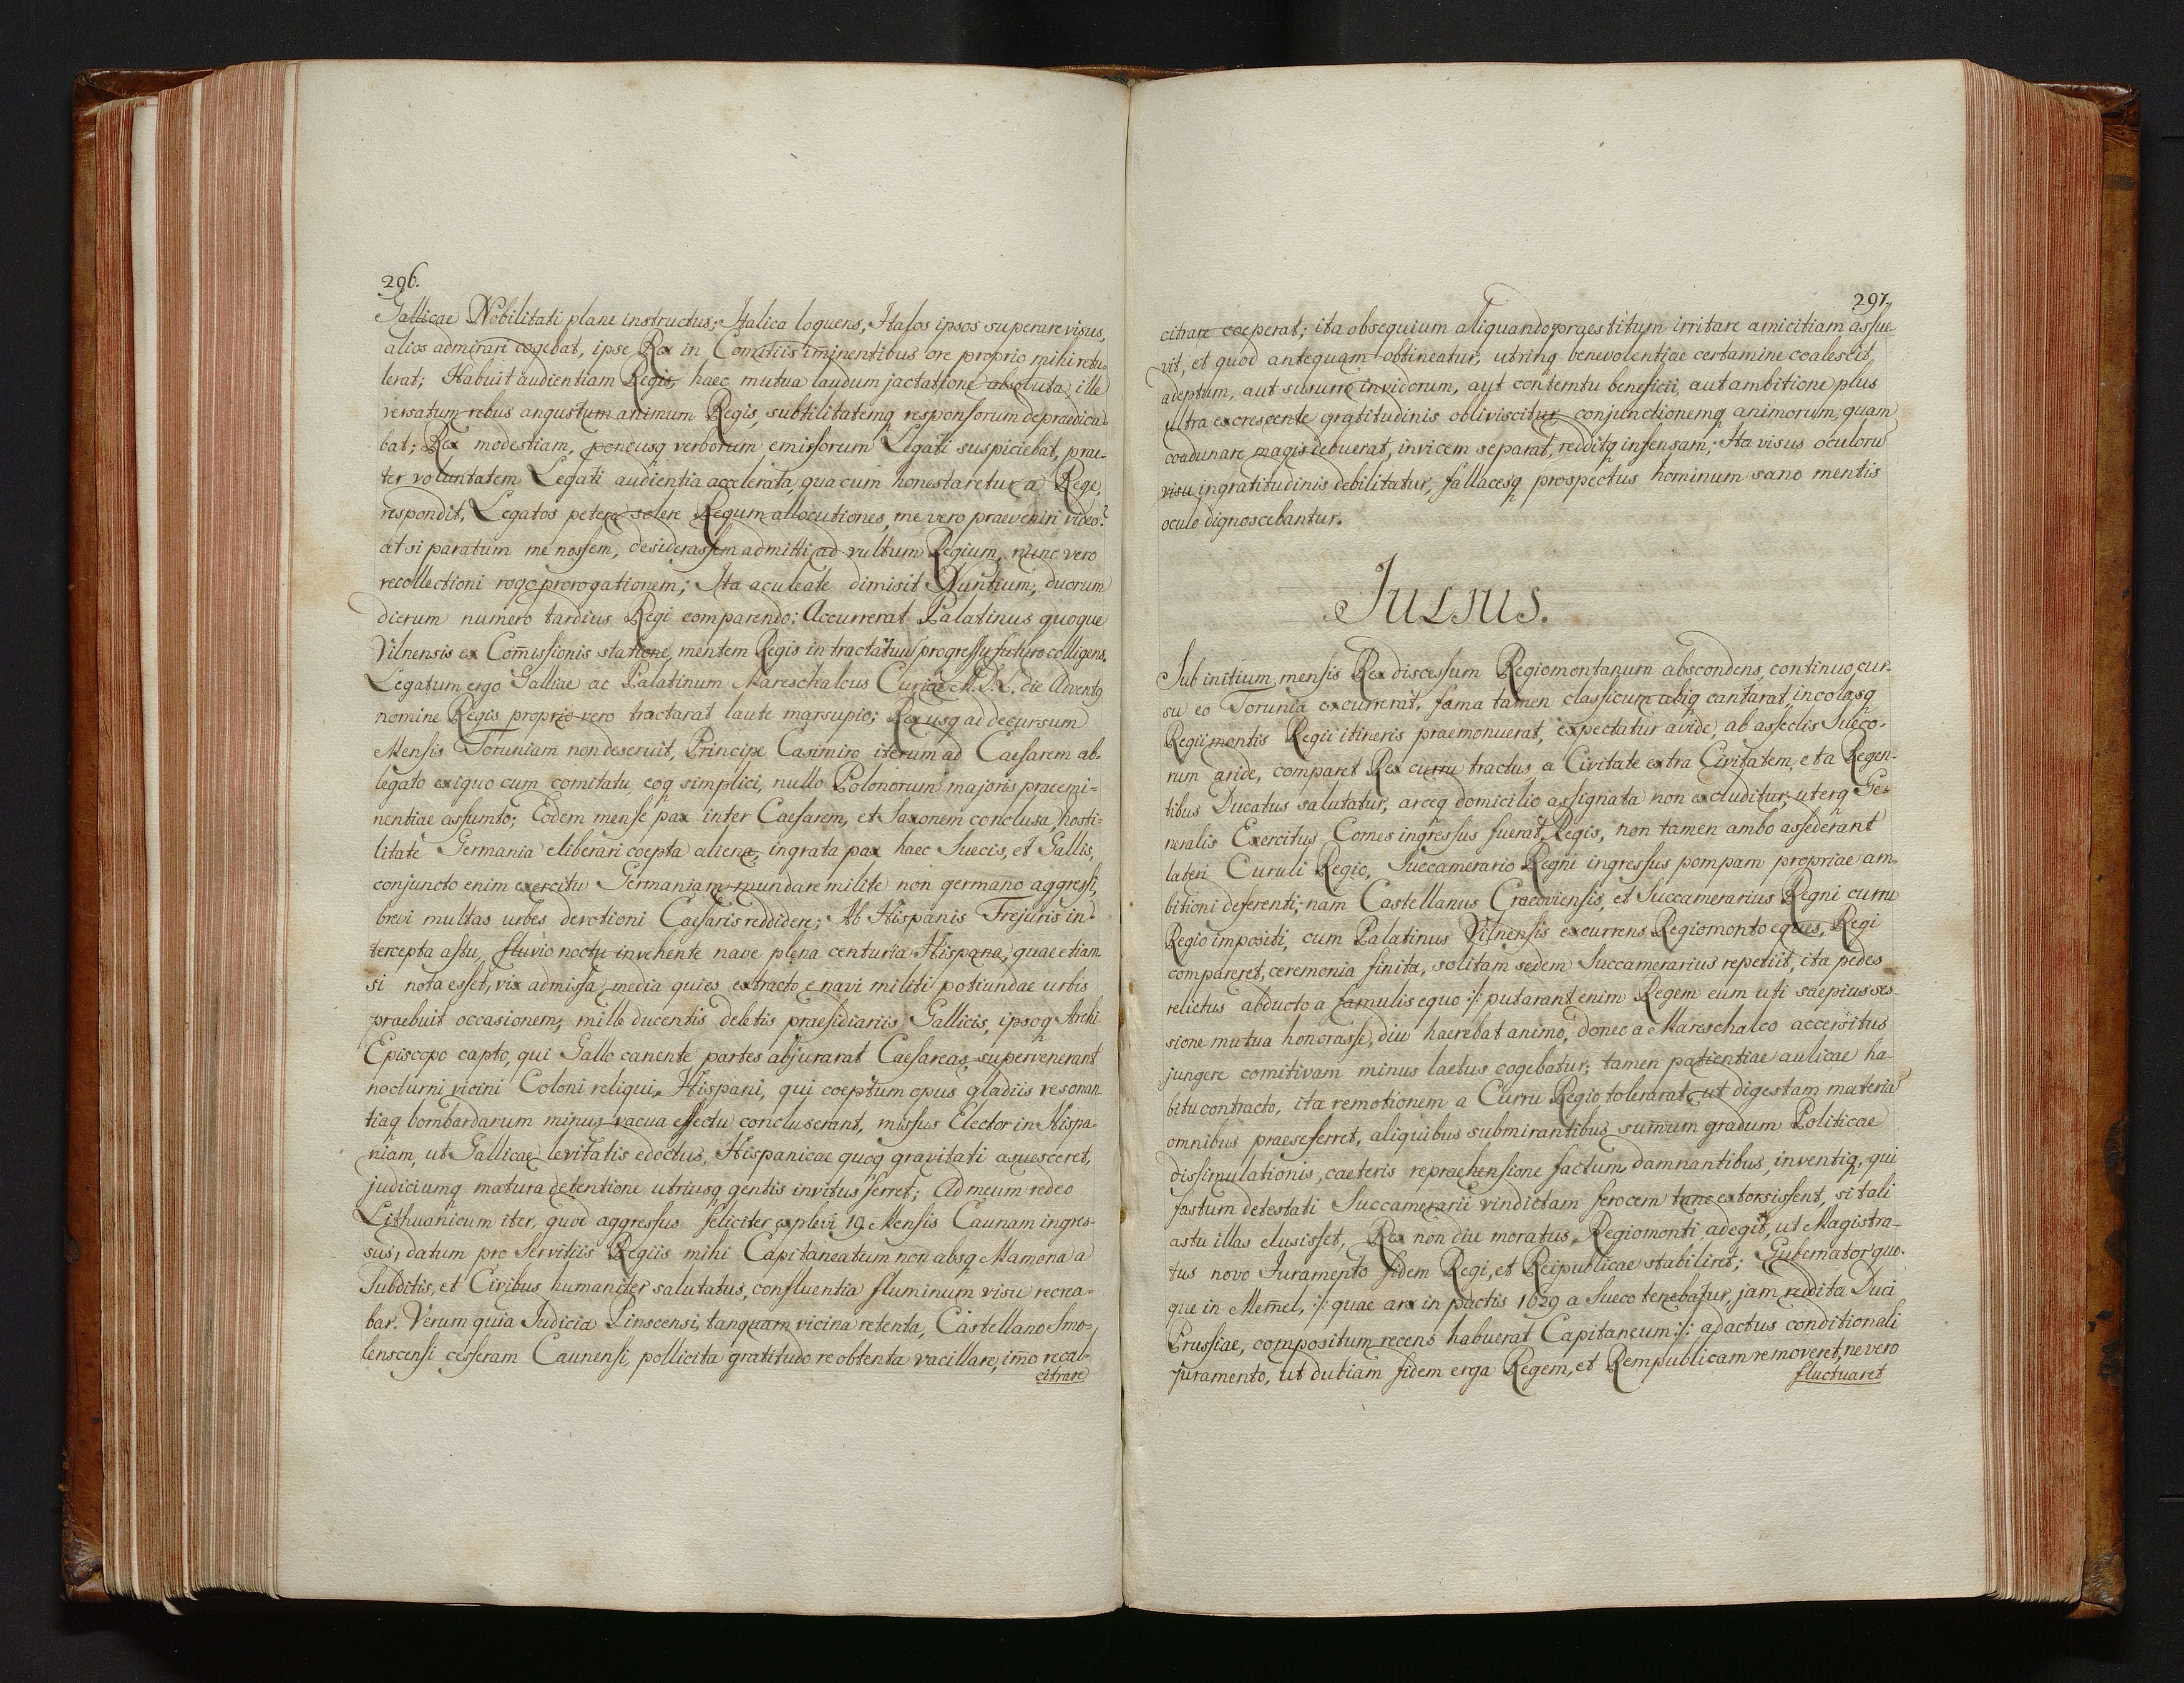 296.
Gallicae Nobilitati plane instructus; Italica loquens, Italos ipsos superare visus,
alios admirari cogebat, ipse Rex in Comitiis im̄inentibus ore proprio mihi retu-
lerat; Habuit audientiam Regis, haec mutua laudum jactatione absoluta, ille
versatum rebus angustum animum Regis, subtilitatemq responsorum depraedica-
bat; Rex modestiam, pondusq verborum emissorum Legati suspiciebat, prae-
ter voluntatem Legati audientia accelerata, qua cum honestaretur a Rege,
respondit, Legatos petere solere Regum allocutiones, me vero praeveniri video?
at si paratum me nossem, desiderassem admitti ad vultum Regium, nunc vero
recollectioni rogo prorogationem; Ita aculeate dimisit Nuntium, duorum
dierum numero tardius Regi comparendo: Accurrerat Palatinus quoque
Vilnensis ex Com̄issionis statione, mentem Regis in tractatuu progressu futuro colligens.
Legatum ergo Galliae ac Palatinum Mareschalcus Curiae M.D.L. die Advent9
nomine Regis proprio vero tractarat laute marsupio; Rex usq ad decursum
Mensis Toruniam non deseruit, Principe Casimiro iterum ad Caesarem ab-
legato exiguo cum comitatu, eoq simplici, nullo Polonorum majoris praeemi-
nentiae assumto; Eodem mense pax inter Caesarem, et Saxonem conclusa, hosti-
litate Germania eliberari coepta aliena, ingrata pax haec Suecis, et Gallis,
conjuncto enim exercitu Germaniam mundare milite non germano aggressi,
brevi multas urbes devotioni Caesaris reddidere; Ab Hispanis Trejuris in-
tercepta astu, fluvio noctu invehente nave plena centuria Hispana, quae etiam
si nota esset, vix admissa, media quies extracto e navi militi potiundae urbis
praebuit occasionem, mille ducentis deletis praesidiariis Gallicis, ipsoq Archi
Episcopo capto, qui Gallo canente partes abjurarat Caesareas, supervenerant
nocturni vicini Coloni reliqui, Hispani, qui coeptum opus gladiis resonan
tiaq bombardarum minus vacua effectu concluserant, missus Elector in Hispa-
niam, ut Gallicae levitatis edoctus, Hispanicae quoq gravitati asuesceret,
judiciumq matura detentione utriusq gentis invitus ferret; Ad meum redeo
Lithuanicum iter, quod aggressus feliciter explevi 19 Mensis Caunam ingres-
sus, datum pro Servitiis Regiis mihi Capitaneatum non absq Mamona a
Subditis, et Civibus humaniter salutatus, confluentia fluminum visu recrea-
bar. Verum quia Judicia Pinscensi, tanquam vicina retenta, Castellano Smo-
lenscensi cesseram Caunensi, pollicita gratitudo re obtenta vacillare, im̄o recal-
citrare
297.
citrare coeperat; ita obsequium aliquando praestitum irritare amicitiam assue
vit, et quod antequam obtineatur, utrinq benevolentiae certamine coalescit,
adeptum, aut susurro invidorum, aut contemtu beneficii, aut ambitione plus
ultra excrescente gratitudinis obliviscitur conjunctionemq animorum, quam
coadunare magis debuerat, invicem separat, redditq infensam; Ita visus oculorū
visu ingratitudinis debilitatur, fallacesq prospectus hominum sano mentis
oculo dignoscebantur.
Julius.
Sub initium mensis Rex discessum Regiomontanum abscondens, continuo cur-
su eo Torunia excurrerat, fama tamen classicum ubiq cantarat, incolasq
Regiimontis Regii itineris praemonuerat, expectatur avide, ab asseclis Sueco-
rum aride, comparet Rex curru tractus a Civitate extra Civitatem, et a Regen-
tibus Ducatus salutatur, arceq domicilio assignata non excluditur, uterq Ge-
neralis Exercitus Comes ingressus fuerat Regis, non tamen ambo assederant
lateri Curuli Regio, Succamerario Regni ingressus pompam propriae am-
bitioni deferenti, nam Castellanus Cracoviensis, et Succamerarius Regni curru
Regio impositi, cum Palatinus Vilnensis excurrens Regiomonto eques, Regi
compareret, ceremonia finita, solitam sedem Succamerarius repetiit, ita pedes
relictus abducto a famulis equo :/: putarant enim Regem eum uti saepius ses-
sione mutua honorasse, diu haerebat animo, donec a Mareschalco accersitus
jungere comitivam minus laetus cogebatur; tamen patientiae aulicae ha
bitu contracto, ita remotionem a Curru Regio tolerarat, ut digestam materiā
omnibus praeseferret, aliquibus submirantibus sum̄um gradum Politicae
dissimulationis, caeteris repraehensione factum damnantibus, inventiq, qui
fastum detestati Succamerarii vindictam ferocem tunc extorsissent, si tali
astu illas elusisset, Rex non diu moratus, Regiomonti adegit, ut Magistra-
tus novo Juramento fidem Regi, et Reipublicae stabiliret; Gubernator quo-
que in Mem̄el, :/: quae arx in pactis 1629 a Sueco tenebatur, jam reddita Duci
Prussiae, compositum recens habuerat Capitaneum :/: adactus conditionali
juramento, ut dubiam fidem erga Regem, et Rempublicam removeret, ne vero
fluctuaret